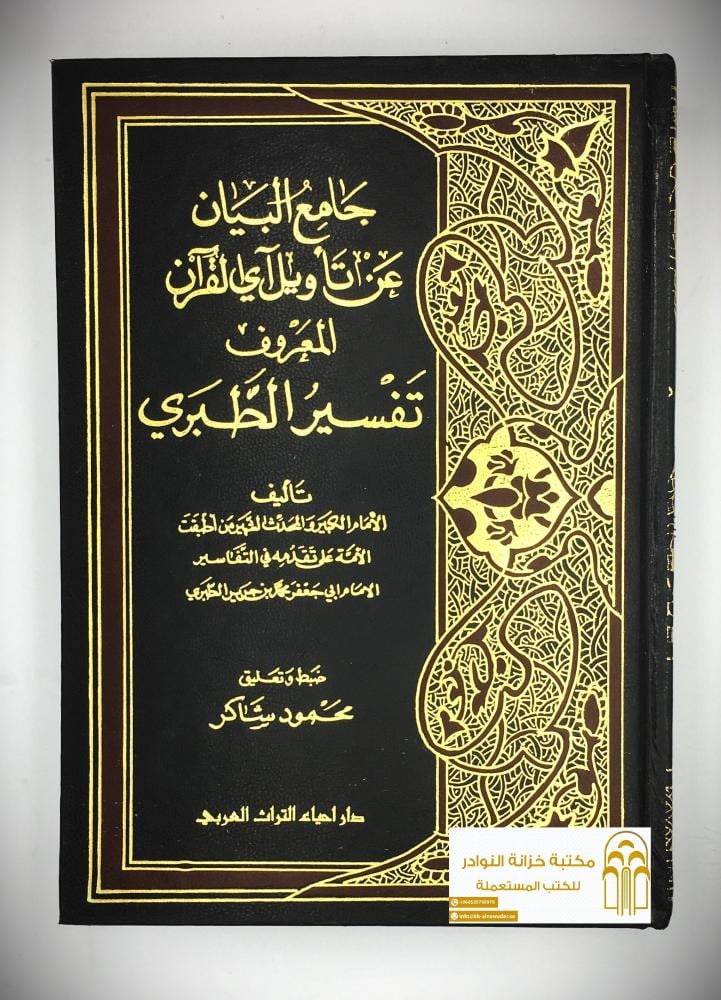 جَامِعُ البَيَان
عَنْ تَأويل آي القُرآن
المَعروف
تَفْسِيرُ الطَّبَري
تَأليف
الإمَام الكبير وَالمحدث الشهير من أطبقت
الأمة عَلى تقدمه في التفاسير
الإمام أبي جَعْفَر محمد بن جرير الطبري
ضبط وَتعليق
محمود شاكر
دار احياء التراث العربي
مكتبة خزانة النوادر
للكتب المستعملة
info@kh-alnawader.sa